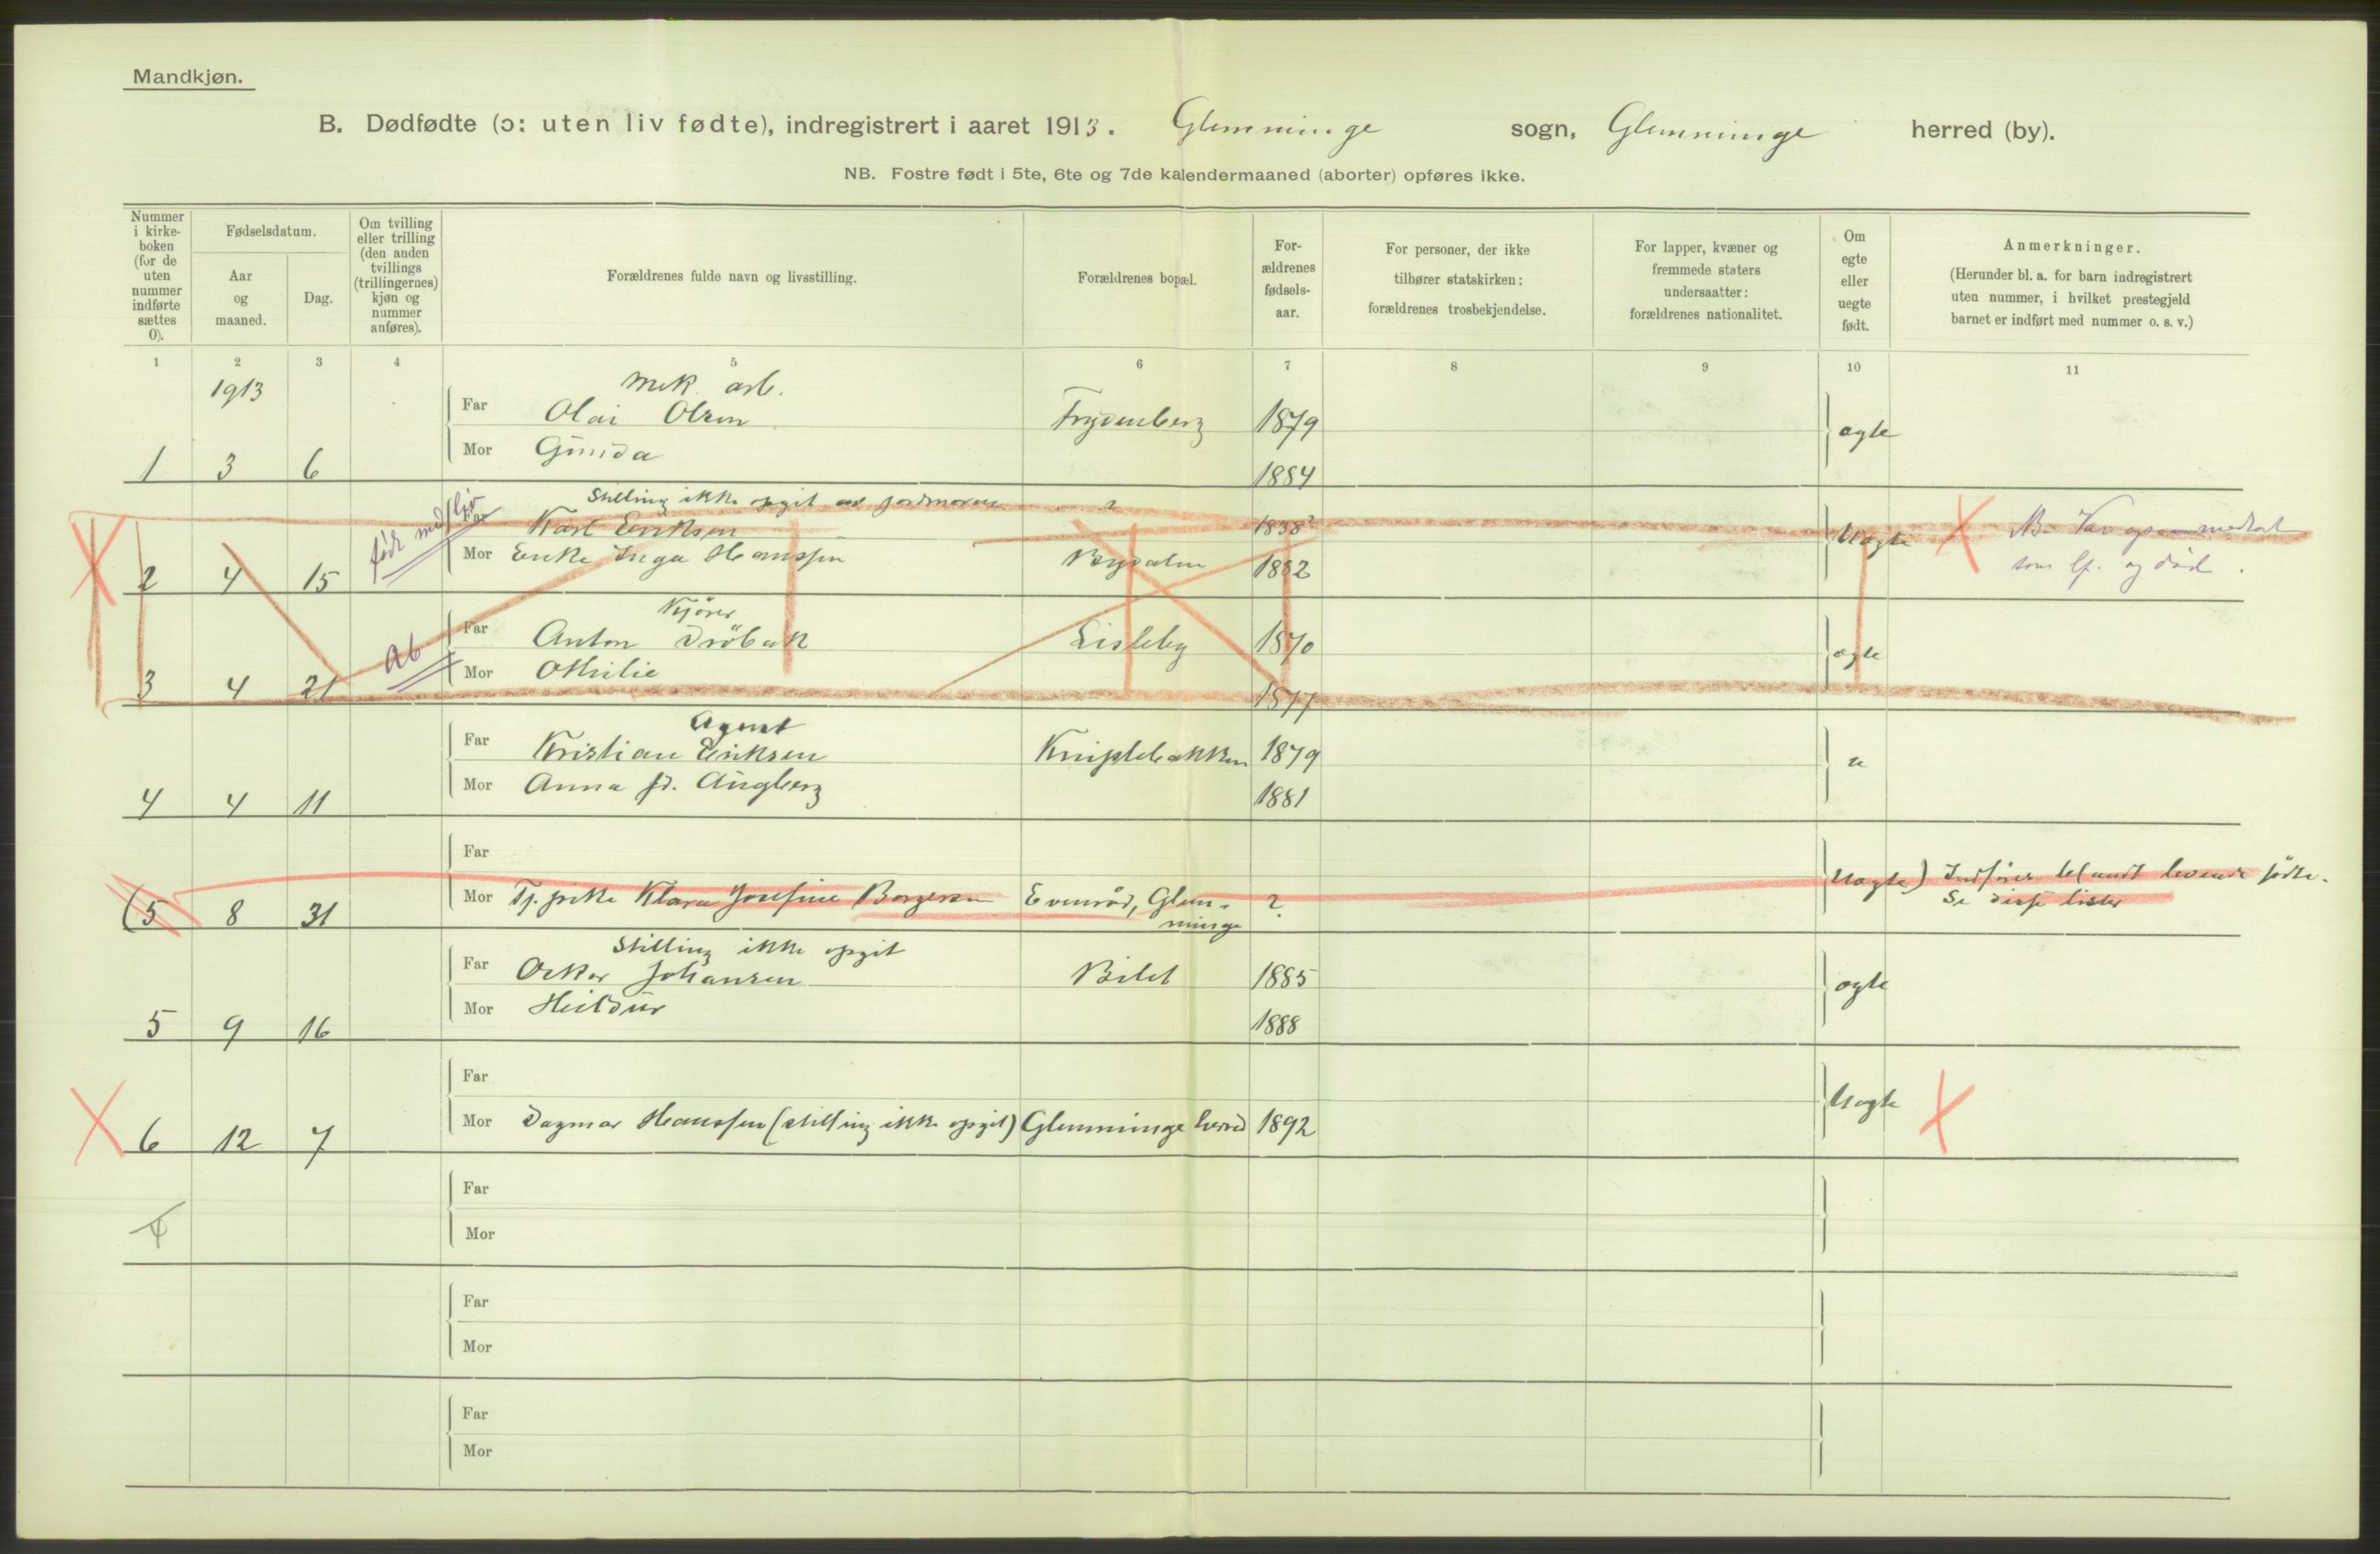 Mandkjøn.
B. Dødfødte (ɔ: uten liv fødte), indregistrert i aaret 1913. Glemminge sogn, Glemminge herred (by).
NB. Fostre født i 5te, 6te og 7de kalendermaaned (aborter) opføres ikke.
Nummer i kirke-boken (for de uten nummer indførte sættes 0).
Fødselsdatum.
Aar og maaned.
Dag.
Om tvilling eller trilling (den anden tvillings (trillingernes) kjøn og nummer anføres).
Forældrenes fulde navn og livsstilling.
Forældrenes bopæl.
For-ældrenes fødsels-aar.
For personer, der ikke tilhører statskirken: forældrenes trosbekjendelse.
For lapper, kvæner og fremmede staters undersaatter: forældrenes nationalitet.
Om egte eller uegte født.
Anmerkninger.
(Herunder bl. a. for barn indregistrert uten nummer, i hvilket prestegjeld barnet er indført med nummer o. s. v.)
1 2 3 4 5 6 7 8 9 10 11
1913
Mek. arb.
Far Olai Olsen Frydenberg 1879 ægte
Mor Gunda
1 3 6 1884
Stilling ikke opgit av jordmoren ?
født med liv
Far Karl Eriksen 1838? Uægte
Mor Enke Inga Hanssen Bydalen 1882
2 4 15
som lf. og død.
Kjører
Far Anton Drøbak Lisleby 1870 ægte
Ab
Mor Othilie
3 4 21 1877
Agent
Far Kristian Eriksen Kniplebakken 1879 "
Mor Anna fd. Augberg
4 4 11 1881
Far
Mor Tj. pike Klara Josefine Borgersen Evenrød, Glem-minge ? Uægte) Indføres blandt levende fødte.
Se disse lister
(5 8 31
Stilling ikke opgit
Far Oskar Johansen Bilet 1885 ægte
Mor Heildur
5 9 16 1888
Far
Uægte
Mor Dagmar Hanssen (stilling ikke opgit) Glemminge herred 1892
6 12 7
Far
Mor
Far
Mor
Far
Mor